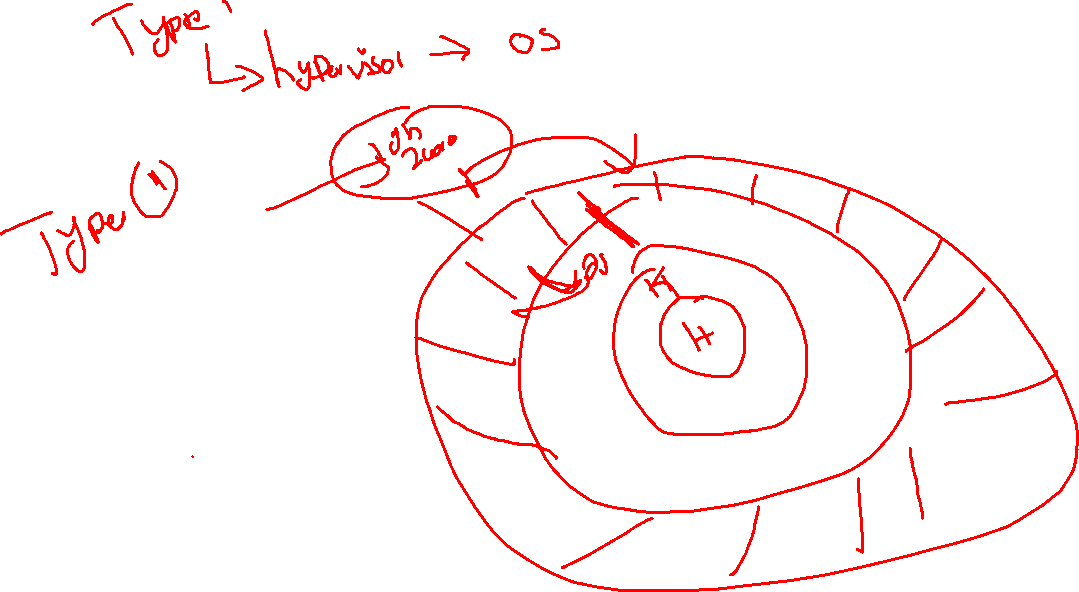 Type 1
hypervisor → OS
Type 1
OS
K
H